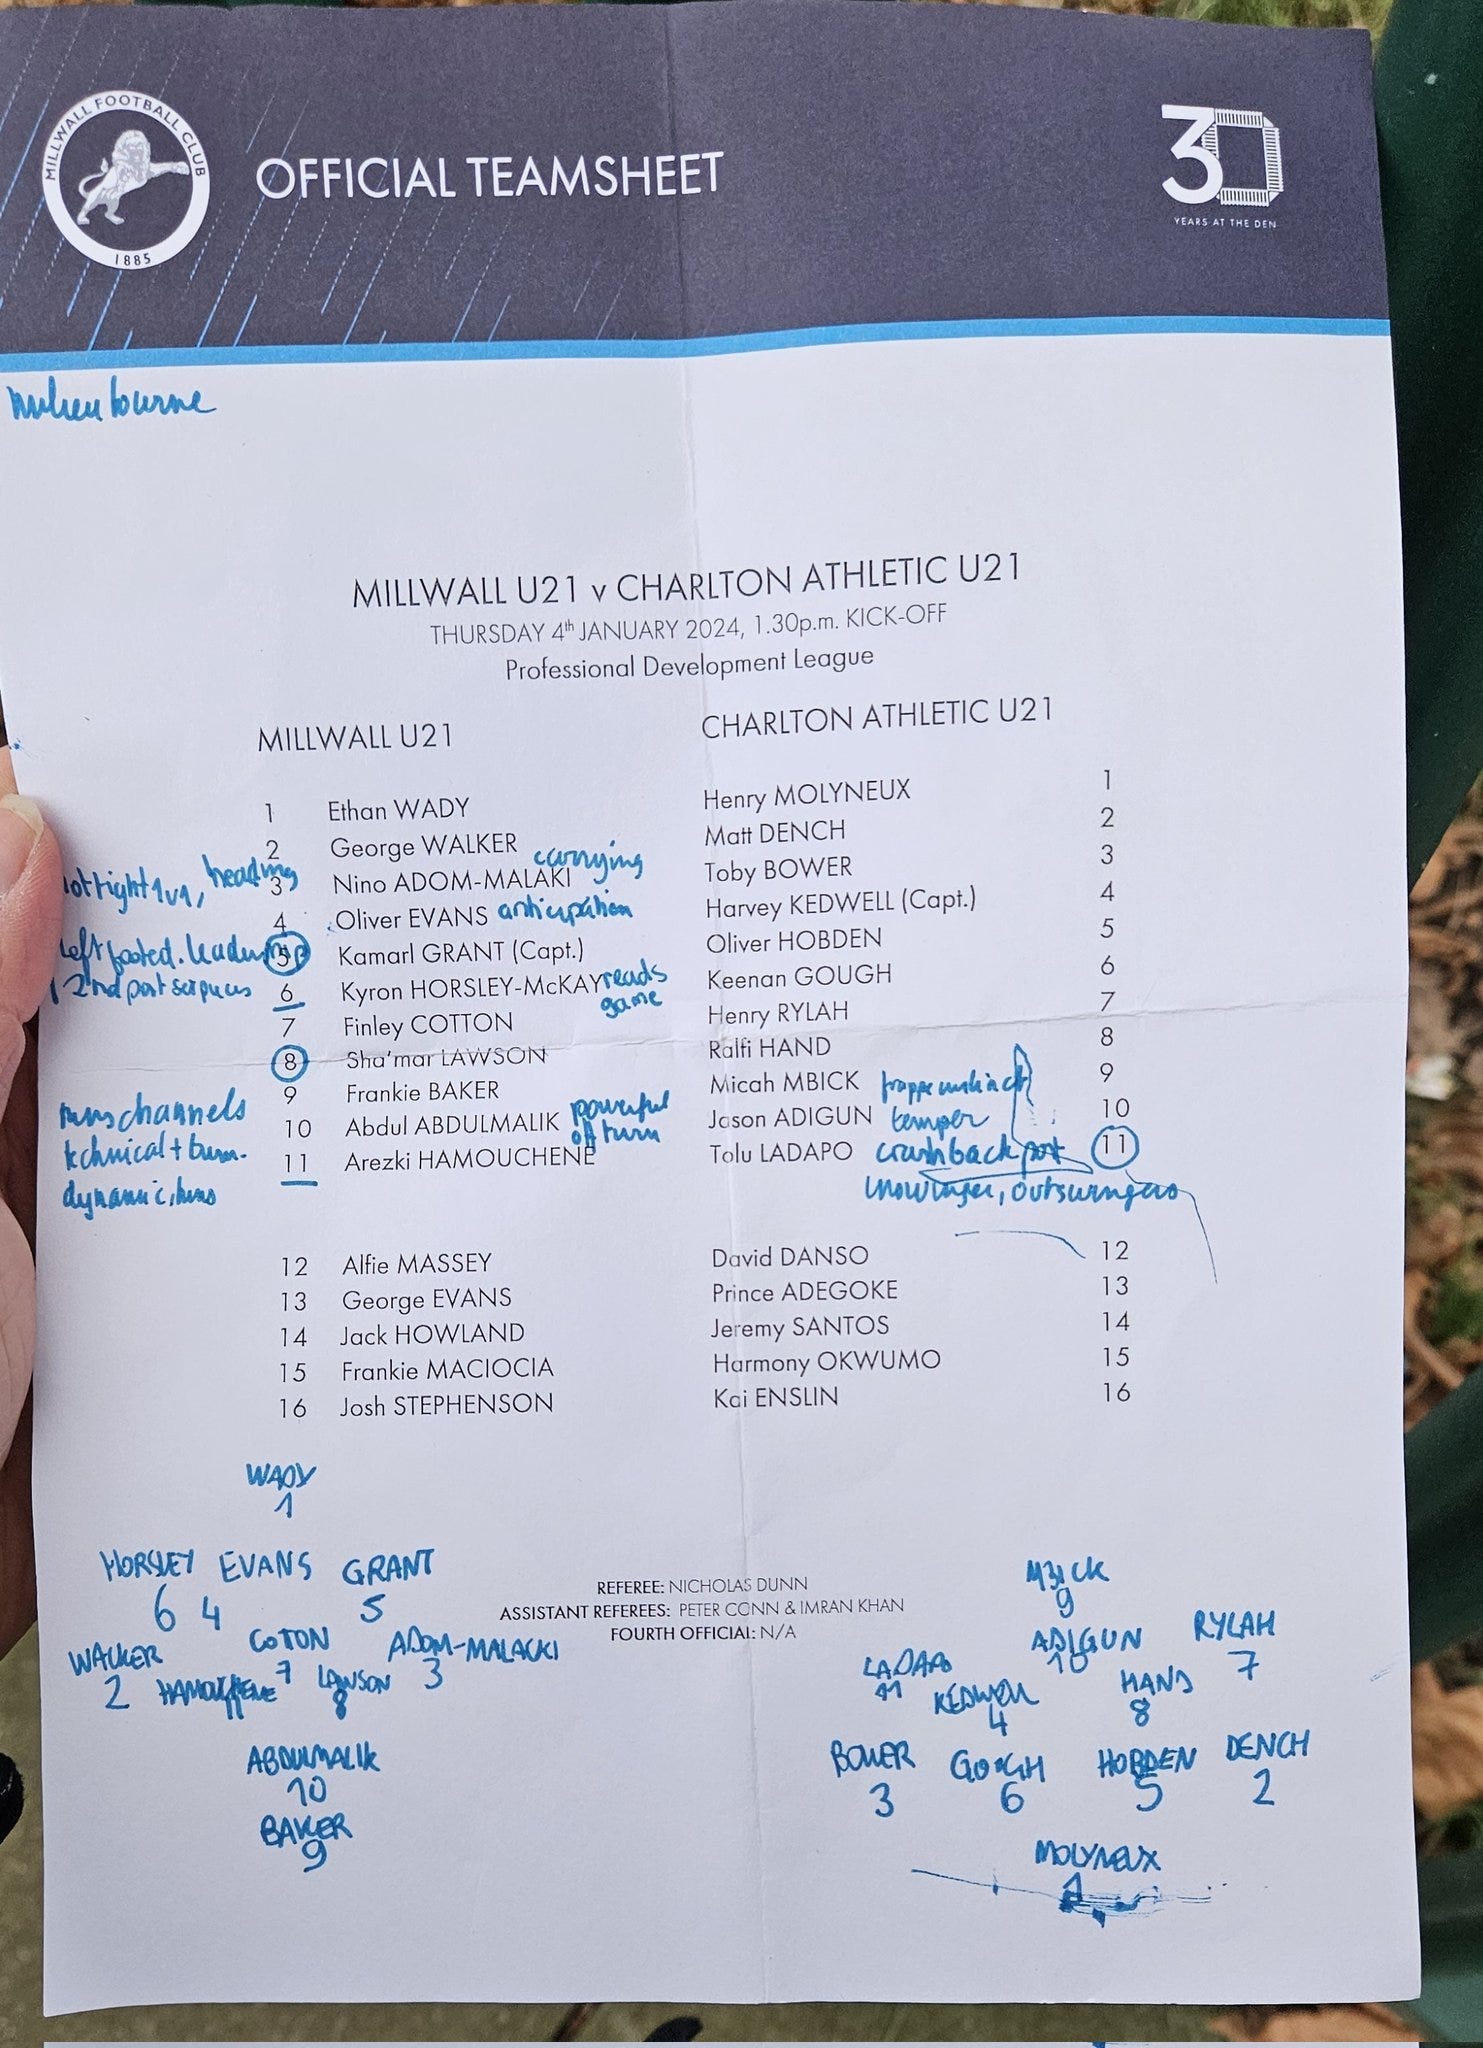 MILLWALL FOOTBALL CLUB
1885
OFFICIAL TEAMSHEET
30
YEARS AT THE DEN
MILLWALL U21 v CHARLTON ATHLETIC U21
THURSDAY 4th JANUARY 2024, 1.30p.m. KICK-OFF
Professional Development League
MILLWALL U21
1 Ethan WADY
2 George WALKER
carrying
heading 3 Nino ADOM-MALAKI
4 Oliver EVANS anticipation
left footed. leadership 5 Kamarl GRANT (Capt.)
2nd post 6 Kyron HORSLEY-McKAY reads
game
7 Finley COTTON
8 Sha'mar LAWSON
9 Frankie BAKER
runs channels
10 Abdul ABDULMALIK powerful
off turn
technical +
11 Arezki HAMOUCHENE
dynamic, runs
12 Alfie MASSEY
13 George EVANS
14 Jack HOWLAND
15 Frankie MACIOCIA
16 Josh STEPHENSON
CHARLTON ATHLETIC U21
Henry MOLYNEUX 1
Matt DENCH 2
Toby BOWER 3
Harvey KEDWELL (Capt.) 4
Oliver HOBDEN 5
Keenan GOUGH 6
Henry RYLAH 7
Ralfi HAND 8
Micah MBICK 9
Jason ADIGUN temper 10
Tolu LADAPO crash back post 11
inswinger, outswingers
David DANSO 12
Prince ADEGOKE 13
Jeremy SANTOS 14
Harmony OKWUMO 15
Kai ENSLIN 16
WADY
1
HORSLEY EVANS GRANT
6 4 5
WALKER COTON ADOM-MALACKI
2 7 3
HAMOUCHENE LAWSON
8
ABDULMALIK
10
BAKER
9
REFEREE: NICHOLAS DUNN
ASSISTANT REFEREES: PETER CONN & IMRAN KHAN
FOURTH OFFICIAL: N/A
MBICK
9
ADIGUN RYLAH
10 7
LADAPO HAND
11 8
KEDWELL
4
BOWER GOUGH HOBDEN DENCH
3 6 5 2
MOLYNEUX
1